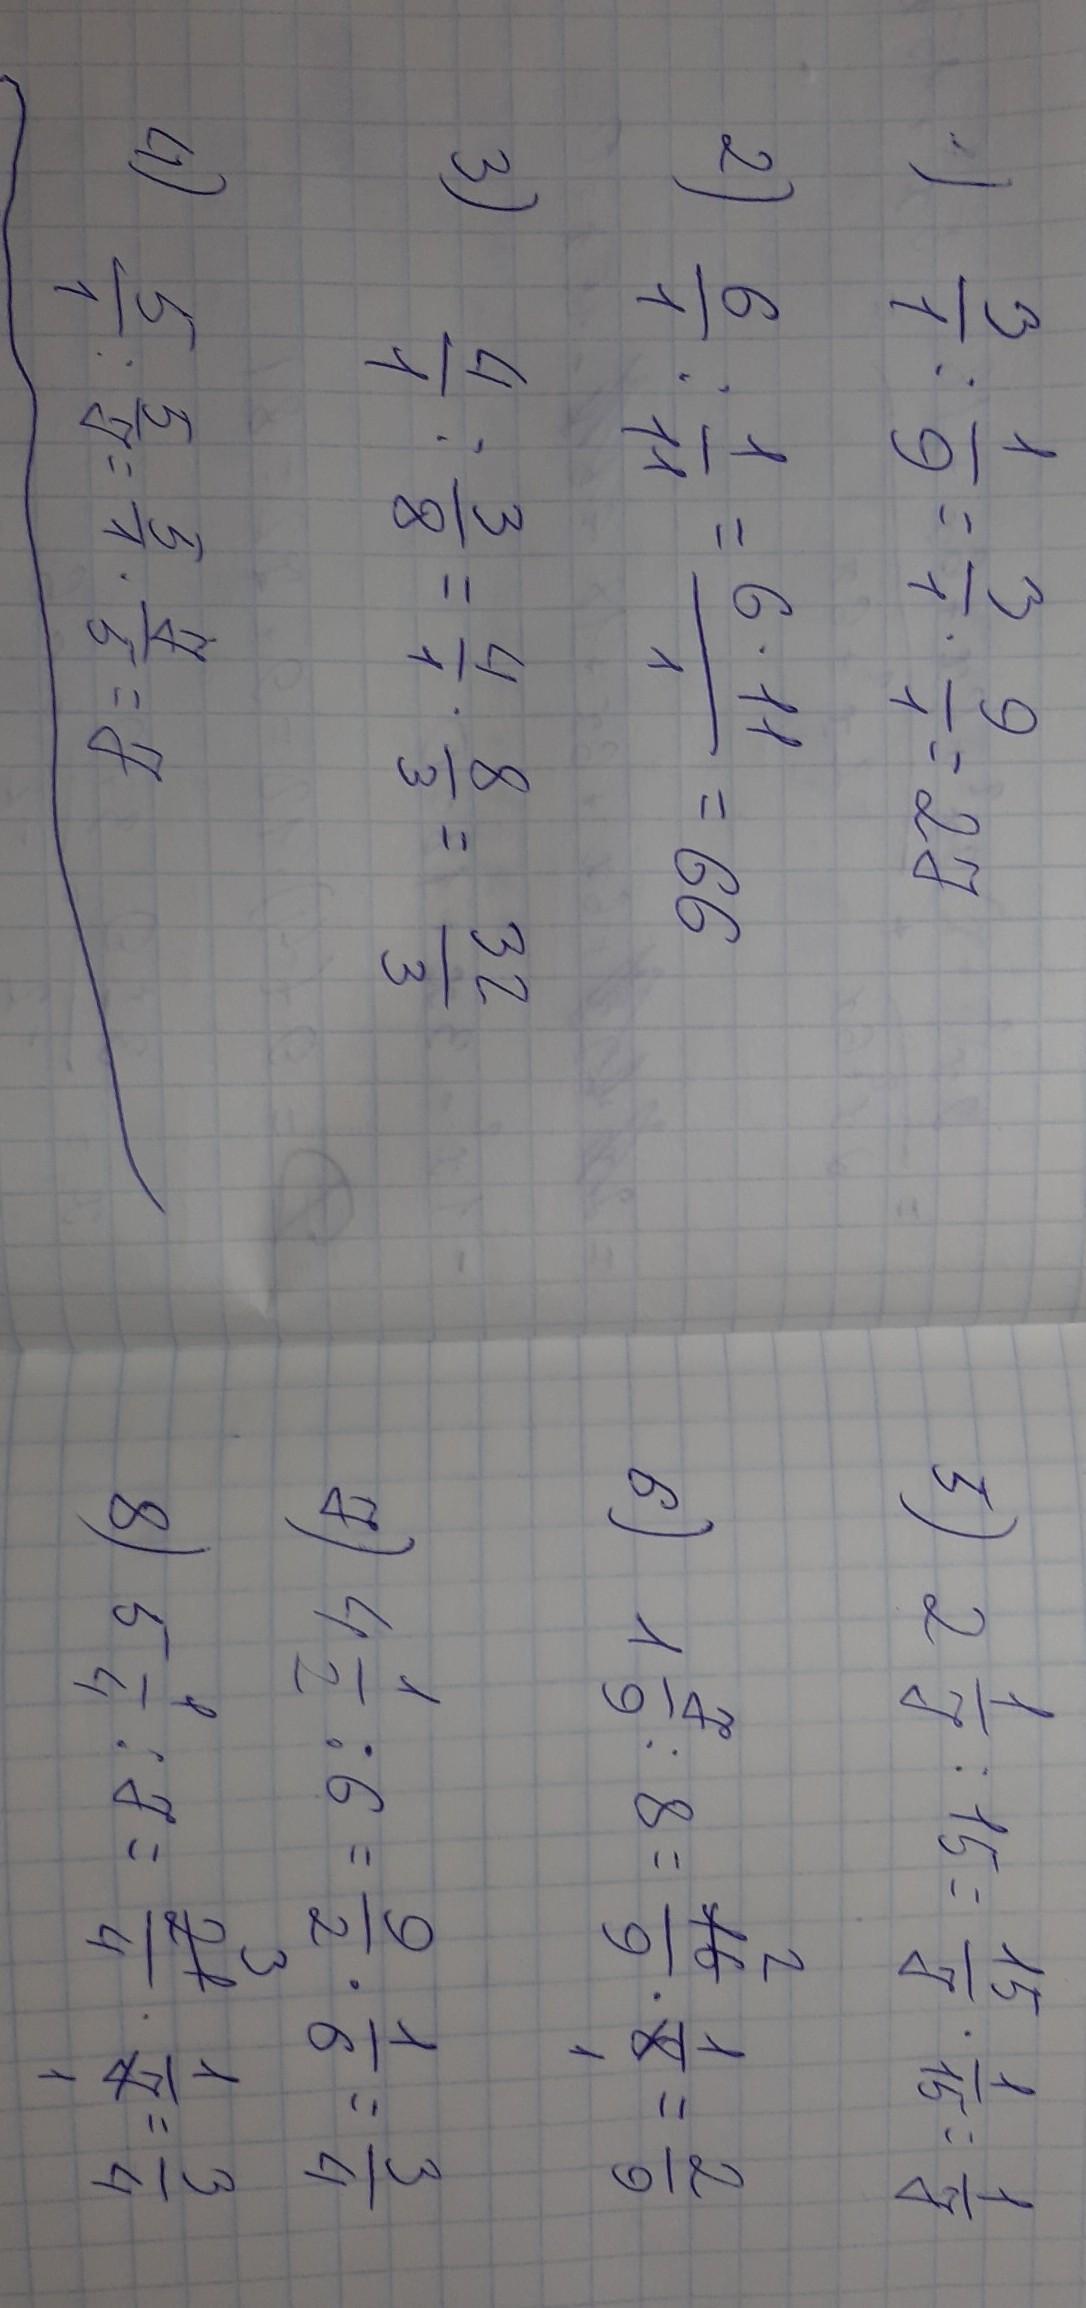 1) 3/1 : 1/9 = 3/1 · 9/1 = 27
2) 6/1 : 1/11 = 6 · 11/1 = 66
3) 4/1 : 3/8 = 4/1 · 8/3 = 32/3
4) 5/1 : 5/7 = 5/1 · 7/5 = 7
5) 2 1/7 : 15 = 15/7 · 1/15 = 1/7
6) 1 7/9 : 8 = 16/9 · 1/8 = 2/9
7) 4 1/2 : 6 = 9/2 · 1/6 = 3/4
8) 5 1/4 : 7 = 21/4 · 1/7 = 3/4